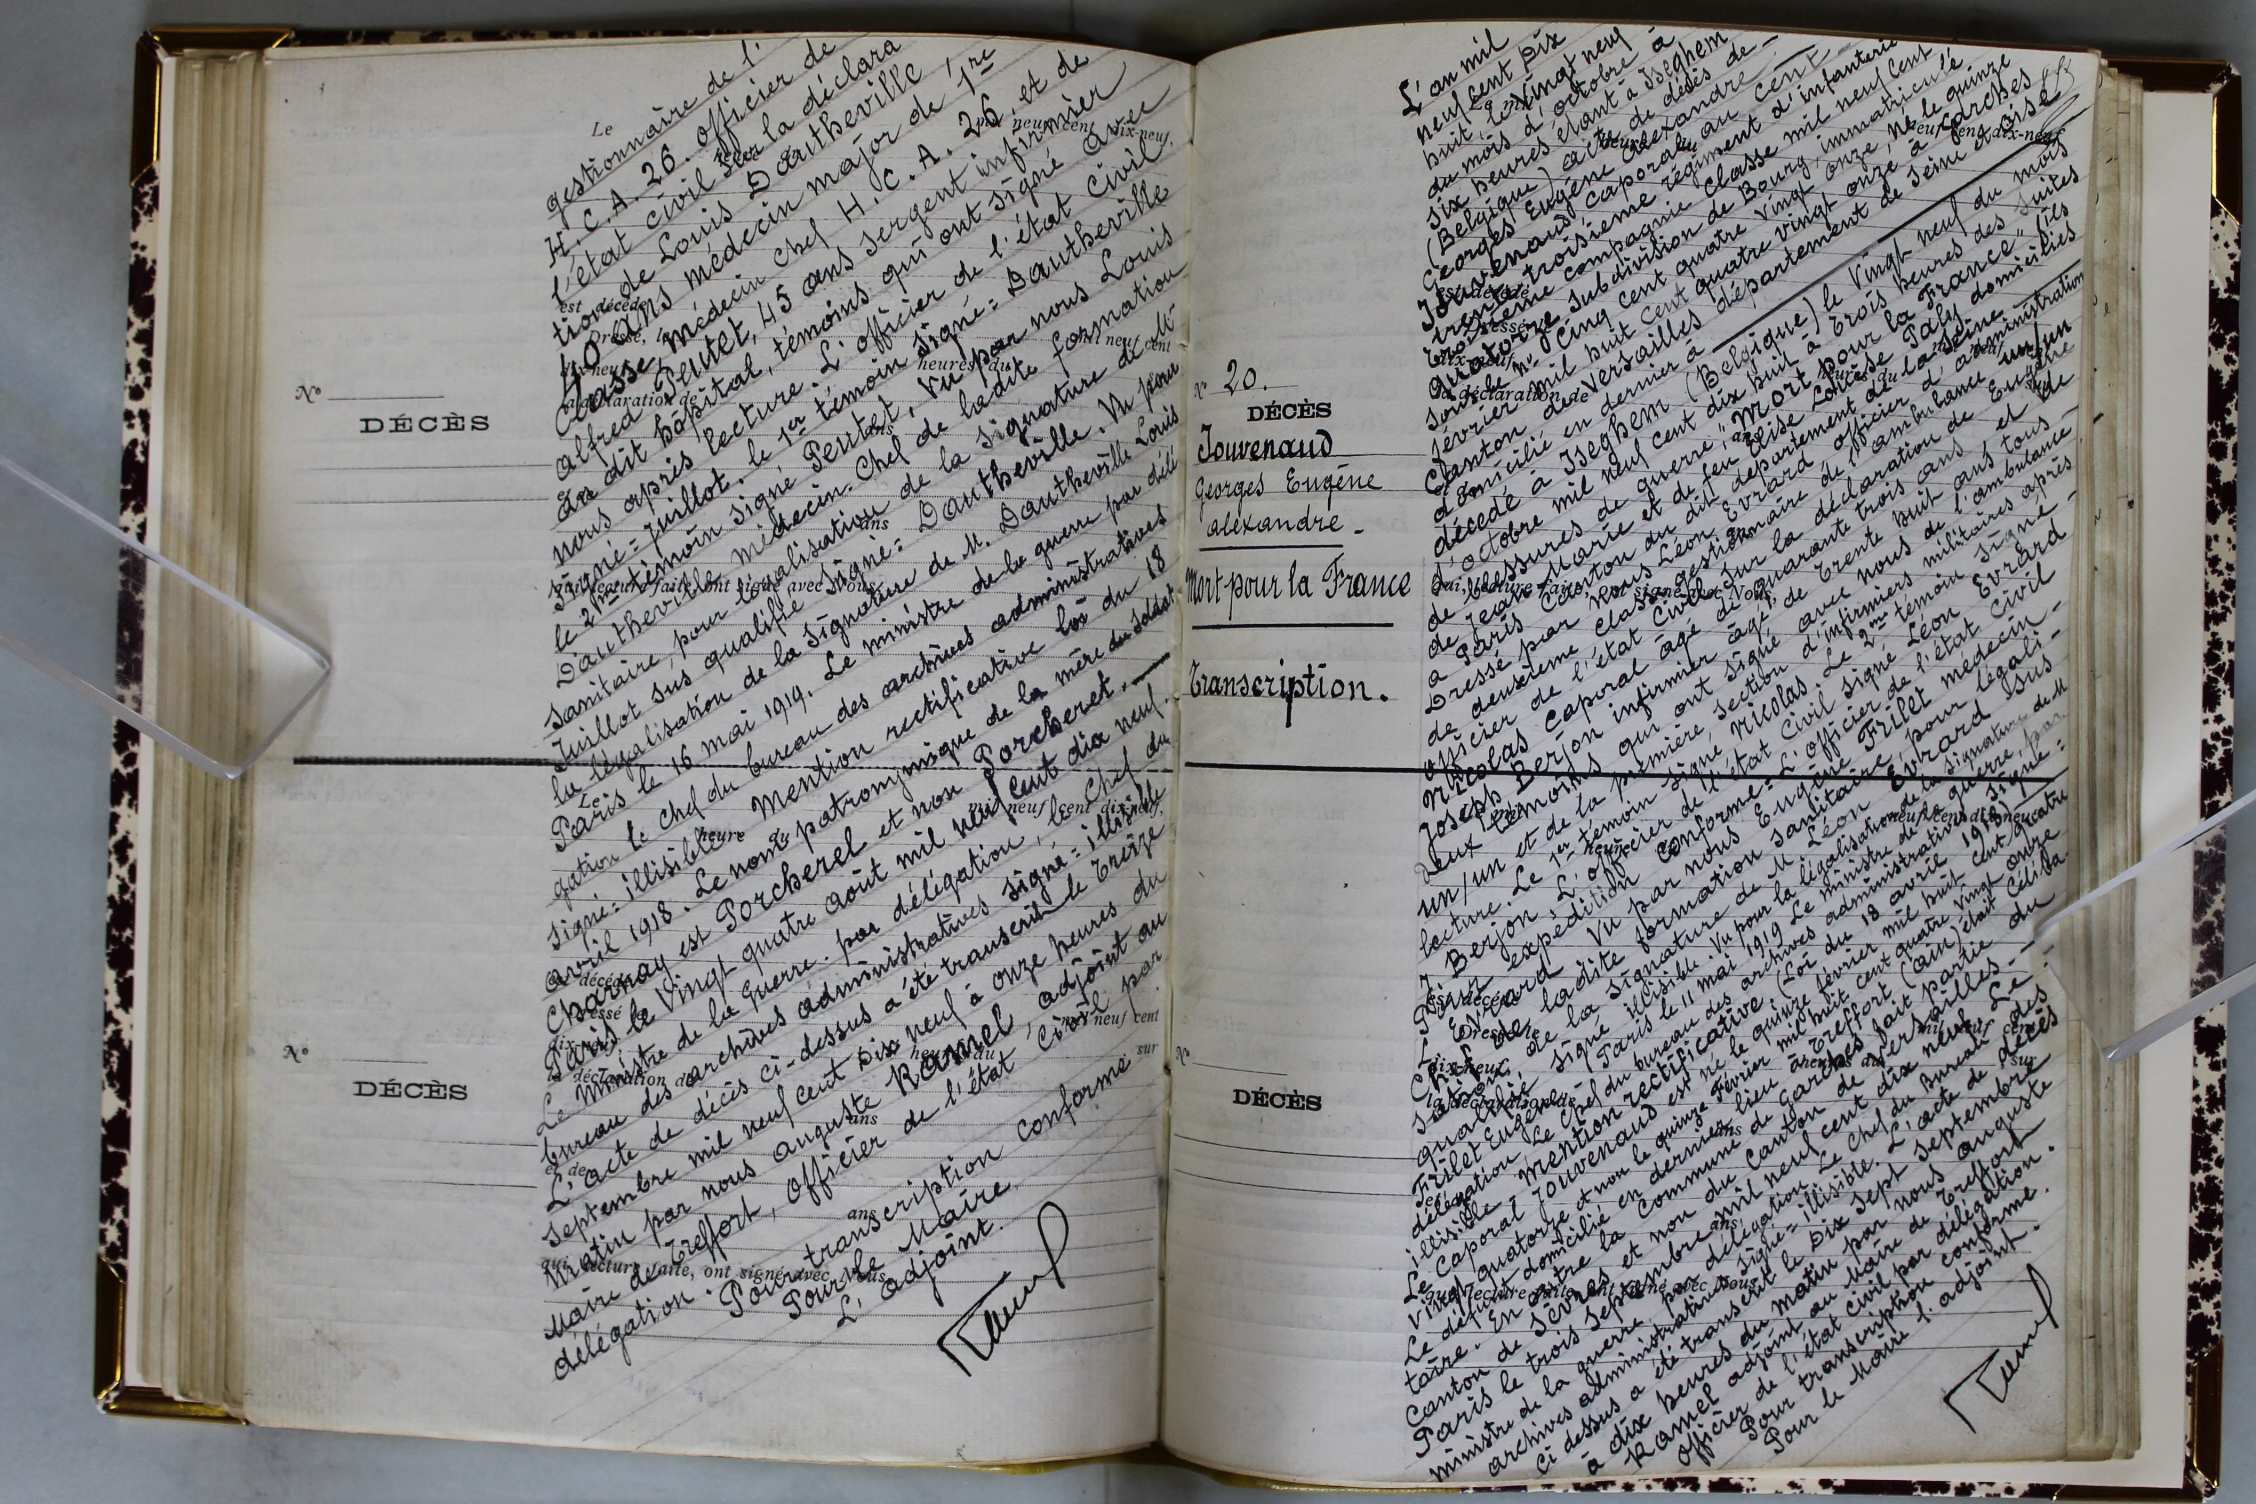 gestionnaire de l'
H. C. A. 26. officier de
l'état civil sur la déclara
tion de Louis Dautheville,
40 ans médecin major de 1re
Classe, médecin chef H. C. A. 26, et de
Alfred Peutet, 45 ans sergent infirmier
au dit hôpital, témoins qui ont signé avec
nous après lecture. L'officier de l'état civil
signé = Juillot. le 1er témoin signé = Dautheville
le 2me témoin signé Peutet, Vu par nous Louis
Dautheville Médecin-Chef de ladite formation
sanitaire, pour légalisation de la signature de Mr
Juillot sus qualifié signé = Dautheville. Vu pour
la légalisation de la signature de M. Dautheville Louis
Paris le 16 mai 1919. Le ministre de la guerre par délé
gation le chef du bureau des archives administratives
signé = illisible = Mention rectificative loi du 18
avril 1918. Le nom patronymique de la mère du soldat
Charnay est Porcherel et non Porcheret.
Paris le vingt quatre août mil neuf cent dix neuf.
Le Ministre de la guerre. par délégation, le Chef du
bureau des archives administratives signé = illisible
L'acte de décès ci-dessus a été transcrit le treize
septembre mil neuf cent dix neuf à onze heures du
matin par nous auguste Ramel, adjoint au
Maire de Treffort, officier de l'état civil par
délégation. Pour transcription conforme
Pour le Maire
L'adjoint.
Le mil neuf cent dix-neuf,
est décédé
Dressé, le mil neuf cent
dix-neuf heures du
la déclaration de
ans
ans
qui, lecture faite, ont signé avec Nous
No
DÉCÈS
Le mil neuf cent dix-neuf,
heure du
No
DÉCÈS
mil neuf cent
heures du
la déclaration de sur
ans
et de
ans
qui, lecture faite, ont signé avec Nous
No 20.
DÉCÈS
Jouvenaud
Georges Eugène
alexandre
Mort pour la France
Transcription.
L'an mil
neuf cent dix
huit, le vingt neuf
du mois d'octobre à
six heures étant à Iseghem
(Belgique) acte de décès de
Georges Eugène Alexandre
Jouvenaud caporal au cent
trente troisième régiment d'infanterie
troisième compagnie classe mil neuf cent
quatorze, subdivision de Bourg, immatriculé
sous le No cinq cent quatre vingt onze, né le quinze
février mil huit cent quatre vingt onze à Garches
Canton de Versailles département de Seine et Oise
domicilié en dernier à
décédé à Iseghem (Belgique) le vingt neuf du mois
d'octobre mil neuf cent dix huit à trois heures des suites
de blessures de guerre "Mort pour la France" fils
de Jean-Marie et de feu Elise Louise Paly domiciliés
à Paris Canton du dit département de la Seine.
Dressé par nous Léon Evrard officier d'administration
de deuxième classe gestionnaire de l'ambulance un/un
officier de l'état civil. Sur la déclaration de Eugène
Nicolas caporal âgé de quarante trois ans et de
Joseph Berjon infirmier âgé de trente huit ans tous
deux témoins qui ont signé avec nous de l'ambulance
un/un et de la première section d'infirmiers militaires après
lecture. Le 1er témoin signé Nicolas. Le 2me témoin signé
J. Berjon, L'officier de l'état civil signé Léon Evrard
Pour expédition conforme = L'officier de l'état civil
L. Evrard Vu par nous Eugène Frilet médecin
Chef de ladite formation sanitaire, pour légali
sation, de la signature de M Léon Evrard sus
qualifié signé illisible. Vu pour la légalisation de la signature de M
Frilet Eugène. Paris le 11 mai 1919 Le ministre de la guerre, par
délégation Le Chef du bureau des archives administratives signé =
illisible = Mention rectificative. (Loi du 18 avril 1918)
Le Caporal Jouvenaud est né le quinze février mil huit cent quatre
vingt quatorze et non le quinze Février mil huit cent quatre vingt onze
Le défunt domicilié en dernier lieu à Treffort (ain) était céliba
taire. En outre la commune de Garches fait partie du
canton de Sèvres et non du canton de Versailles.
Paris le trois septembre mil neuf cent dix neuf. Le
ministre de la guerre, par délégation Le Chef du Bureau des
archives administratives signé = illisible. L'acte de décès
ci dessus a été transcrit le dix sept septembre
à dix heures du matin par nous auguste
Ramel adjoint au Maire de Treffort
officier de l'état civil par délégation.
Pour transcription conforme.
Pour le Maire l'adjoint.
No
DÉCÈS